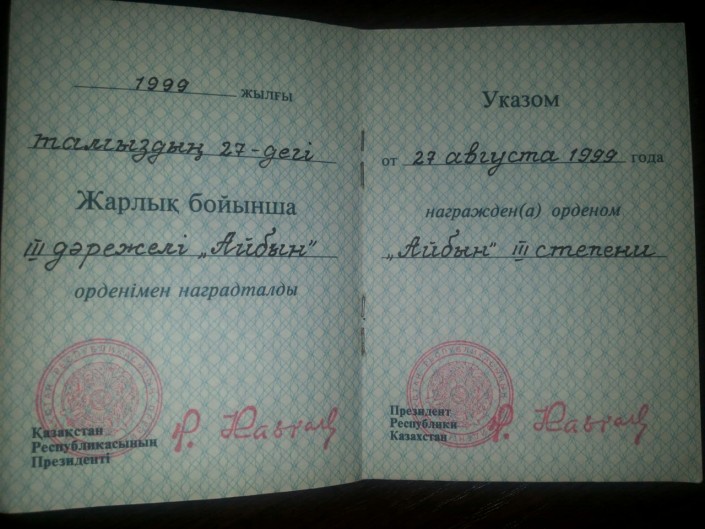 1999 жылғы
тамыздың 27-дегі
Жарлық бойынша
III дәрежелі „Айбын"
орденімен наградталды
Қазақстан
Республикасының
Президенті
Указом
от 27 августа 1999 года
награжден(а) орденом
„Айбын" III степени
Президент
Республики
Казахстан